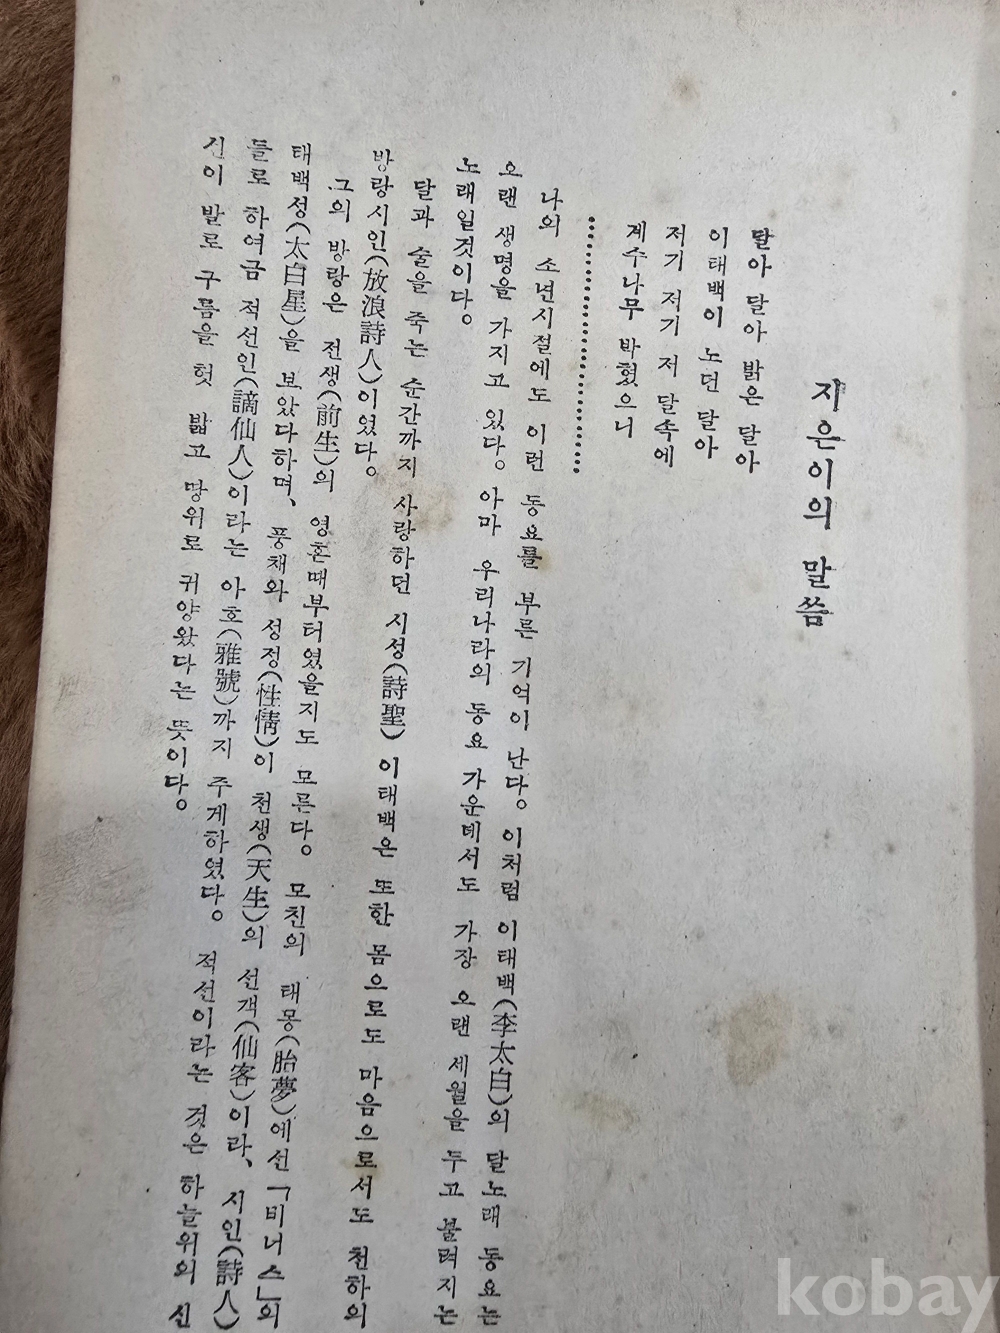 지은이의 말씀
달아 달아 밝은 달아
이태백이 노던 달아
저기 저기 저 달속에
계수나무 박혔으니
나의 소년시절에도 이런 동요를 부른 기억이 난다。이처럼 이태백(李太白)의 달노래 동요는
오랜 생명을 가지고 있다。아마 우리나라의 동요 가운데서도 가장 오랜 세월을 두고 불려지는
노래일것이다。
달과 술을 죽는 순간까지 사랑하던 시성(詩聖) 이태백은 또한 몸으로도 마음으로서도 천하의
방랑시인(放浪詩人)이였다。
그의 방랑은 전생(前生)의 영혼때부터였을지도 모른다。모친의 태몽(胎夢)에선「비너스」의
태백성(太白星)을 보았다하며、풍채와 성정(性情)이 천생(天生)의 선객(仙客)이라、시인(詩人)
들로 하여금 적선인(謫仙人)이라는 아호(雅號)까지 주게하였다。적선이라는 것은 하늘위의 신
선이 발로 구름을 헛 밟고 땅위로 귀양왔다는 뜻이다。
kobay